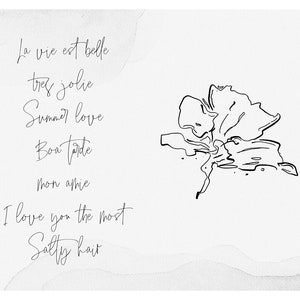 La vie est belle
tres jolie
Summer love
Boa tarde
mon amie
I love you the most
Salty hair